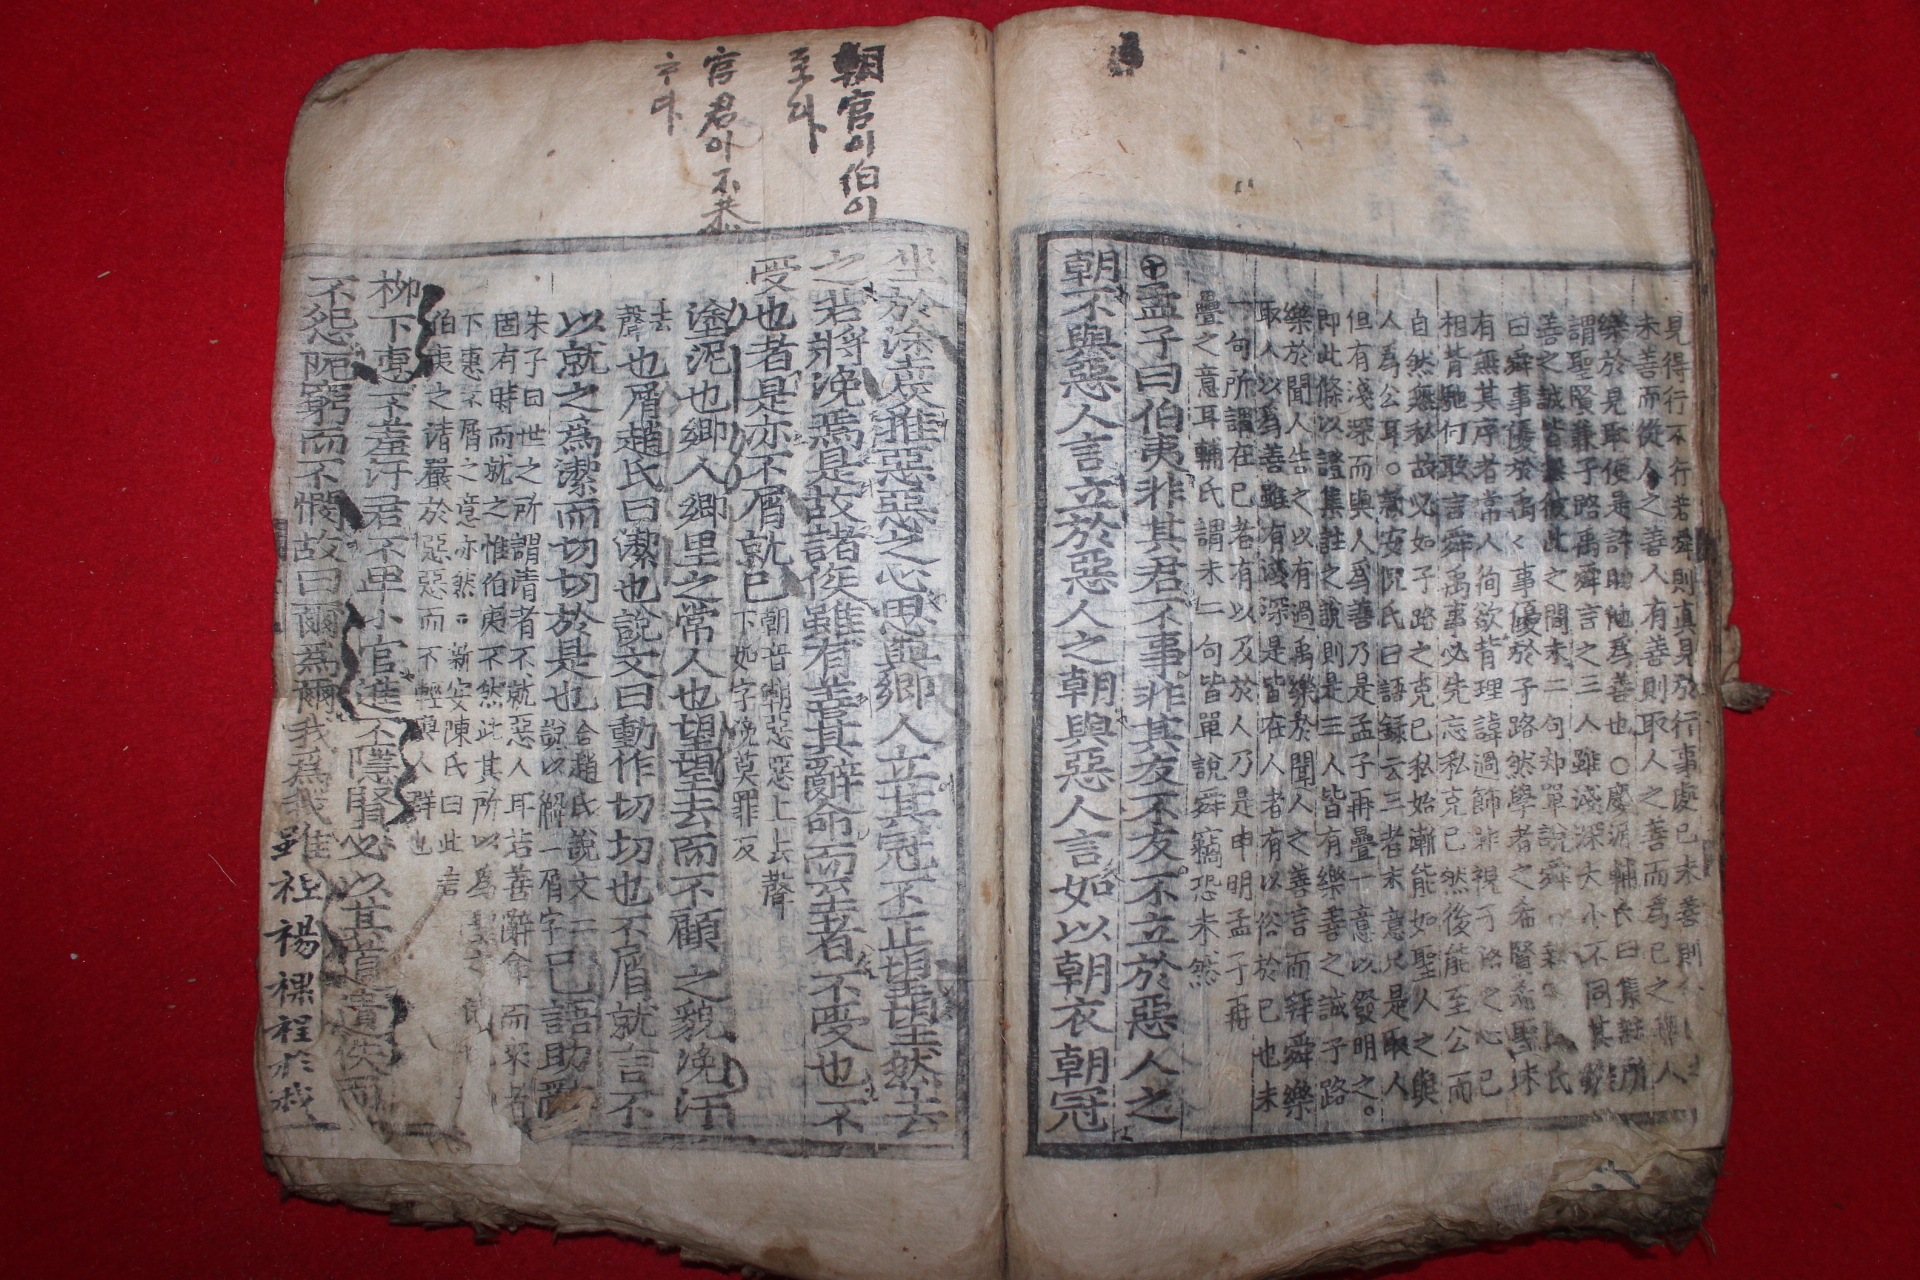 見得行不行若舜則眞見於行事處已未善則
未善而從人之善人有善則取人之善而爲已之
樂於見取便是許助他爲善也○慶源輔氏曰集註所
謂聖賢兼子路禹舜言之三人雖淺深大小不同其
善之誠皆無彼此之間末二句却單說舜
曰舜事優於禹〻事優於子路然學者之希賢希聖
有無其序者常人徇欲背理諱過飾非視子路之心已
相背馳何敢言舜禹事必先忘私克已然後能至公而
自然無私故必如子路之克已私始漸能如聖人之與
人爲公耳○新安倪氏曰語録云三者末意只是取人
但有淺深而與人爲善乃是孟子再疊一意以發明之。
即此條以證集註之說則是三人皆有樂善之誠子路
樂於聞人告之以有過禹樂於聞人之善言而拜舜樂
取人以爲善雖有淺深是皆在人者有以裕於已也末
一句所謂在已者有以及於人乃是申明孟子再
疊之意耳輔氏謂末二句皆單說舜竊恐未然
孟子曰伯夷非其君不事非其友不友不立於惡人之
朝不與惡人言立於惡人之朝與惡人言如以朝衣朝冠
朝官이伯이
至라
官君아不恭
ᄒᆞ다
坐於塗炭推惡惡之心思與鄉人立其冠不正望望然去
之若將浼焉是故諸侯雖有善其辭命而至者不受也不
受也者是亦不屑就已
朝音潮惡惡上去聲
下如字浼莫罪反
塗泥也鄉人鄉里之常人也望望去而不顧之貌浼汙
也屑趙氏曰潔也說文曰動作切切也不屑就言不
以就之爲潔而切切於是也
合趙氏說文二
說以解一屑字
已語助辭
朱子曰世之所謂清者不就惡人耳若善辭命而來者
固有時而就之惟伯夷不然此其所以爲聖之
下惠不屑之意亦然○新安陳氏曰此言
伯夷之清嚴於惡惡而不輕與人群也
柳下惠不羞汙君不卑小官進不隱賢必以其道遺佚而
不怨阨窮而不憫故曰爾爲爾我爲我雖袒裼裸裎於我